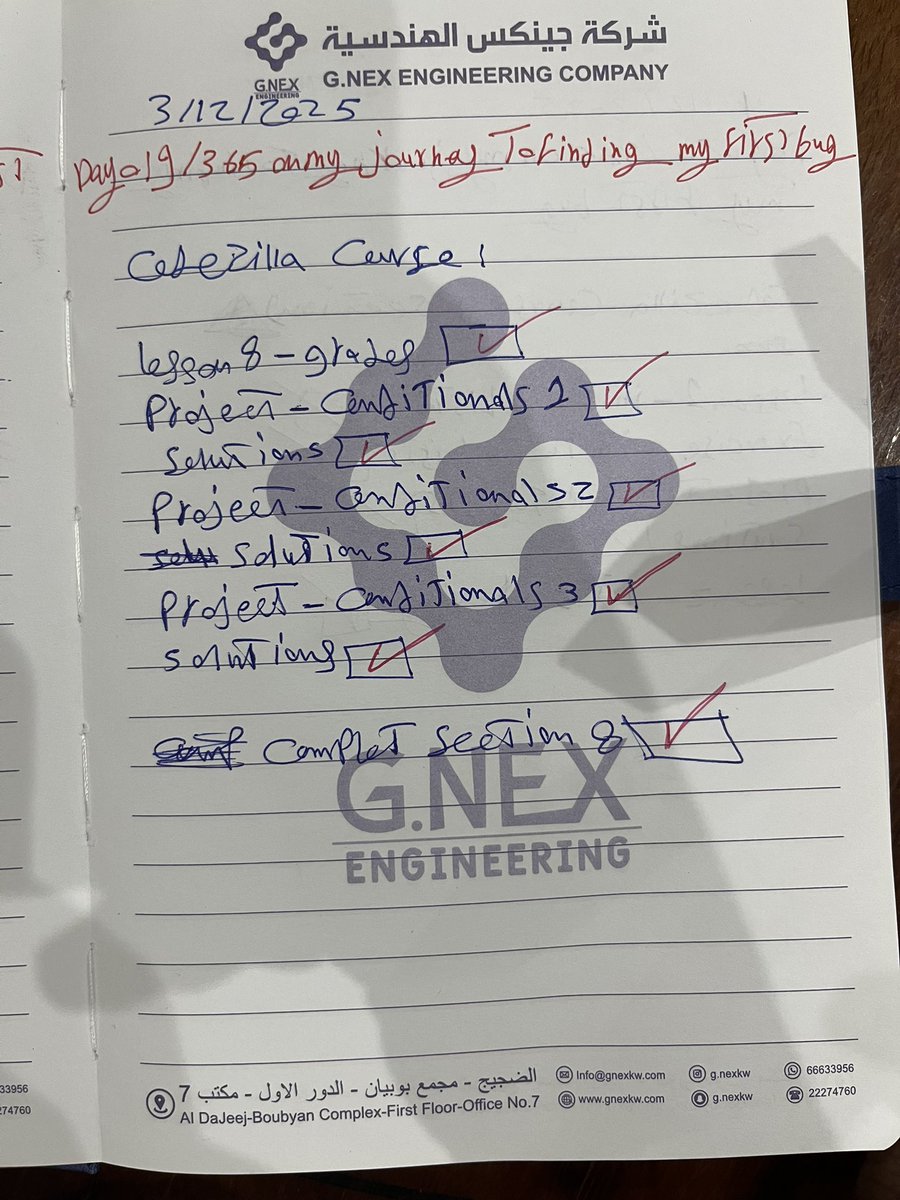 شركة جينكس الهندسية
G.NEX ENGINEERING COMPANY
G.NEX
ENGINEERING
3/12/2025
Day 019/365 on my journey To finding my first bug
Codezilla Course 1
lesson 8 - grades
Project - Conditionals 1
solutions
Project - Conditionals 2
solutions
Project - Conditionals 3
solutions
Complet section 8
G.NEX
ENGINEERING
الضجيج - مجمع بوبيان - الدور الاول - مكتب 7
Al DaJeej-Boubyan Complex-First Floor-Office No.7
Info@gnexkw.com
www.gnexkw.com
g.nexkw
g.nexkw
66633956
22274760
33956
74760